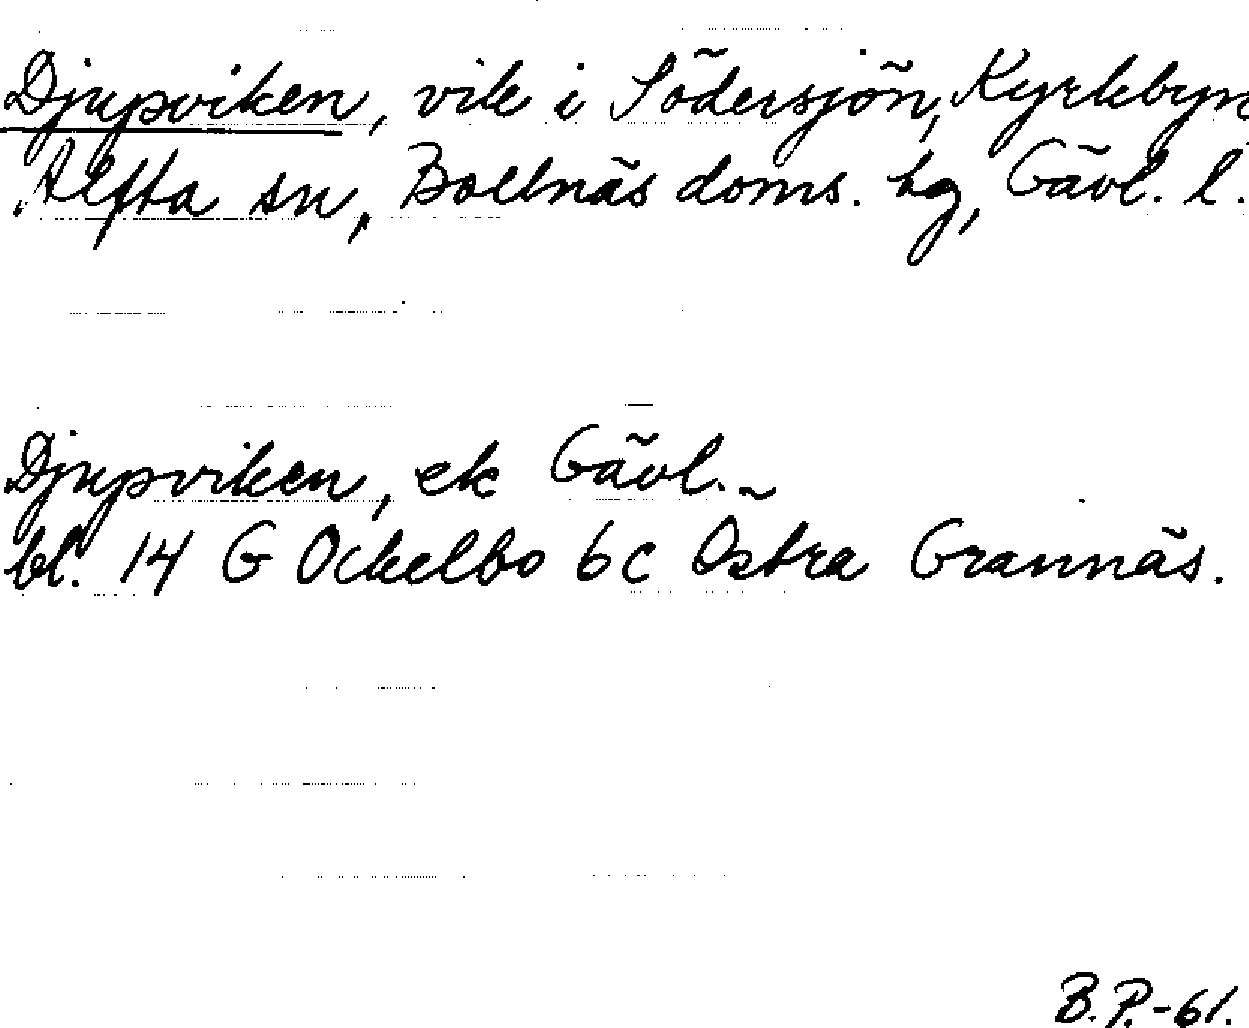 Djupviken, vik i Södersjön, Kyrkbyn
Alfta sn, Bollnäs doms. tg, Gävl. l.
Djupviken, ek Gävl.
bl. 14 G Ockelbo 6c Östra Grannäs.
B.P.-61.